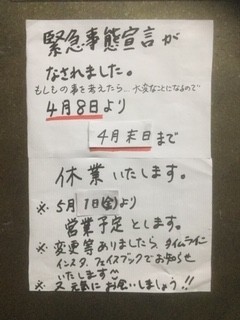 緊急事態宣言が
なされました。
もしもの事を考えたら…大変なことになるので
4月8日より
4月末日まで
休業いたします。
※ 5月1日(金)より
営業予定とします。
※ 変更等ありましたら、タイムライン
インスタ、フェイスブックでお知らせ
いたします
※ 又元気にお会いしましょう!!